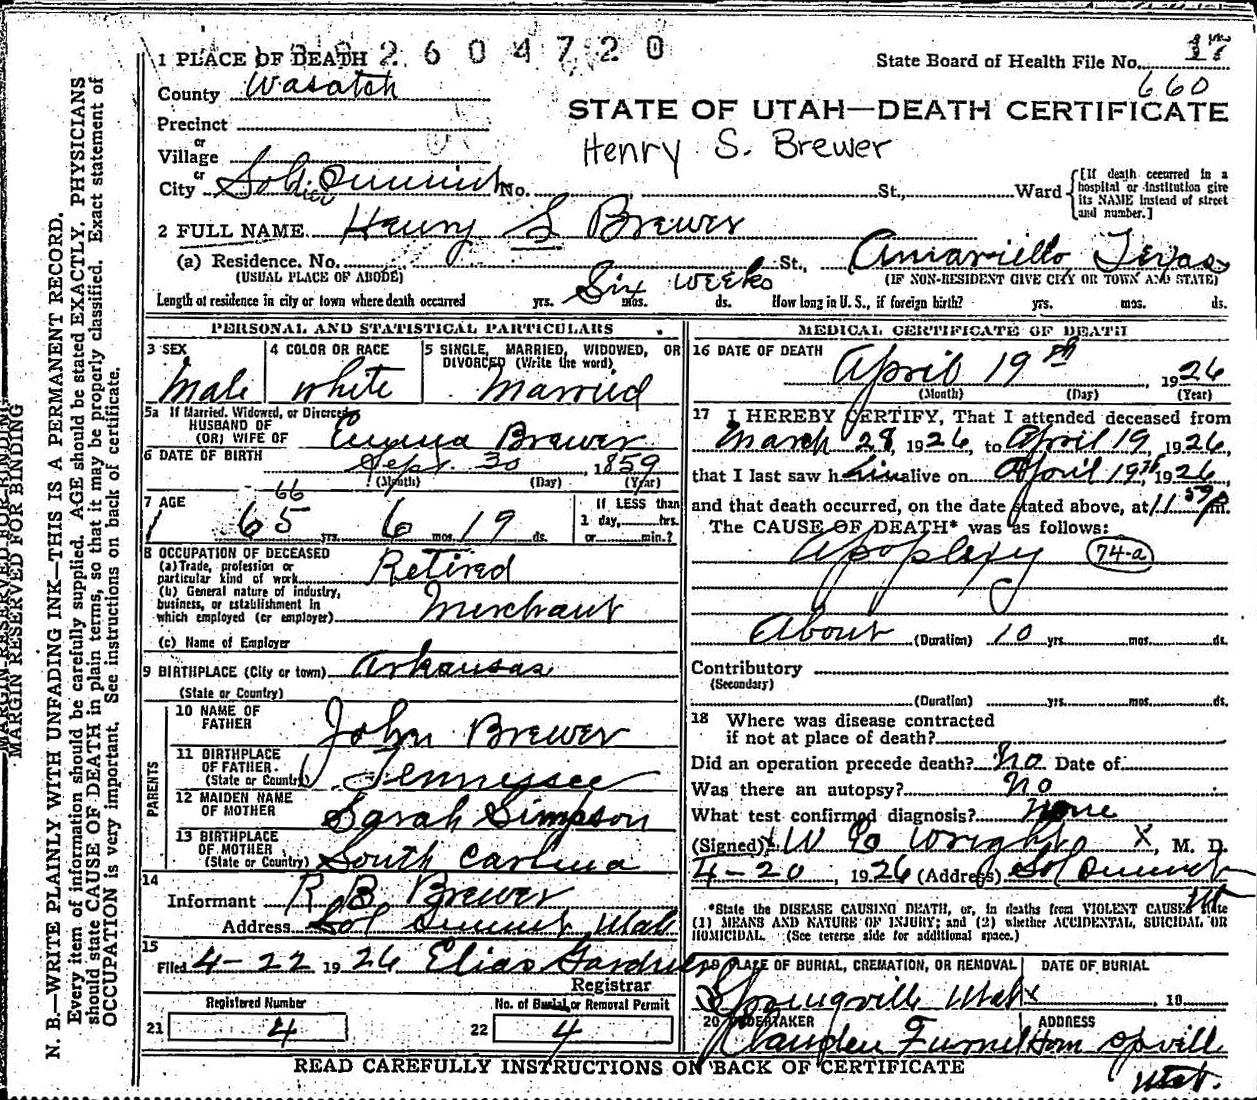 2604720
1 PLACE OF DEATH
State Board of Health File No. 17
660
County Wasatch
STATE OF UTAH—DEATH CERTIFICATE
Precinct
or
Village
Henry S. Brewer
or
City Soldier Summit No. St., Ward
[If death occurred in a hospital or institution give its NAME instead of street and number.]
2 FULL NAME Henry S Brewer
(a) Residence, No. St., Amarillo Texas
(USUAL PLACE OF ABODE) (IF NON-RESIDENT GIVE CITY OR TOWN AND STATE)
Length of residence in city or town where death occurred yrs. Six mos. weeks ds. How long in U. S., if foreign birth? yrs. mos. ds.
PERSONAL AND STATISTICAL PARTICULARS
3 SEX
Male
4 COLOR OR RACE
white
5 SINGLE, MARRIED, WIDOWED, OR
DIVORCED (Write the word)
Married
5a If Married, Widowed, or Divorced
HUSBAND OF
(OR) WIFE OF Brewer
6 DATE OF BIRTH Sept. 30, 1859
(Month) (Day) (Year)
7 AGE
66
65 yrs. 6 mos. 19 ds.
If LESS than
1 day, hrs.
or min.?
8 OCCUPATION OF DECEASED
(a) Trade, profession or
particular kind of work Retired
(b) General nature of industry,
business, or establishment in
which employed (or employer) Merchant
(c) Name of Employer
9 BIRTHPLACE (City or town) Arkansas
(State or Country)
PARENTS
10 NAME OF
FATHER John Brewer
11 BIRTHPLACE
OF FATHER
(State or Country) Tennessee
12 MAIDEN NAME
OF MOTHER Sarah Simpson
13 BIRTHPLACE
OF MOTHER
(State or Country) South Carolina
14
Informant R B Brewer
Address Sol Summit, Utah
15
Filed 4-22 1926 Elias Gardner
Registrar
Registered Number
21 4
No. of Burial or Removal Permit
22 4
MEDICAL CERTIFICATE OF DEATH
16 DATE OF DEATH
April 19th, 1926
(Month) (Day) (Year)
17 I HEREBY CERTIFY, That I attended deceased from
March 28, 1926, to April 19, 1926,
that I last saw him alive on April 19th, 1926,
and that death occurred, on the date stated above, at 11 59 P m.
The CAUSE OF DEATH* was as follows:
Apoplexy 74-a
About (Duration) 10 yrs. mos. ds.
Contributory
(Secondary)
(Duration) yrs. mos. ds.
18 Where was disease contracted
if not at place of death?
Did an operation precede death? No Date of
Was there an autopsy? No
What test confirmed diagnosis? None
(Signed) W Wright X, M. D.
4-20, 1926 (Address) Sol Summit
Ut
*State the DISEASE CAUSING DEATH, or, in deaths from VIOLENT CAUSES, state
(1) MEANS AND NATURE OF INJURY; and (2) whether ACCIDENTAL, SUICIDAL OR
HOMICIDAL. (See reverse side for additional space.)
19 PLACE OF BURIAL, CREMATION, OR REMOVAL DATE OF BURIAL
Springville Utah , 19
20 UNDERTAKER ADDRESS
Funeral Hom Spville
Utah.
READ CAREFULLY INSTRUCTIONS ON BACK OF CERTIFICATE
MARGIN RESERVED FOR BINDING
MARGIN RESERVED FOR BINDING
N. B.—WRITE PLAINLY WITH UNFADING INK—THIS IS A PERMANENT RECORD.
Every item of information should be carefully supplied. AGE should be stated EXACTLY. PHYSICIANS
should state CAUSE OF DEATH in plain terms, so that it may be properly classified. Exact statement of
OCCUPATION is very important. See instructions on back of certificate.